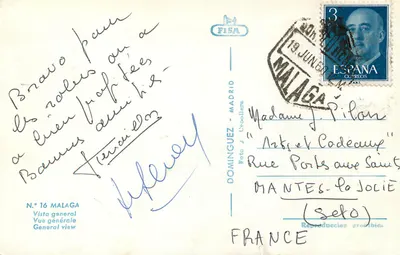 Bravo pour
les robes on a
bien profitées
Bonnes amitiés
N.º 16 MALAGA
Vista general
Vue générale
General view
FISA
DOMINGUEZ - MADRID
19 JUN
MALAGA
3
ESPAÑA
CORREOS
Madame J. Pilon
"Arts et Cadeaux"
Rue Portes aux Saints
MANTES-la JOLIE
(S et O)
FRANCE
Reproducción prohibida